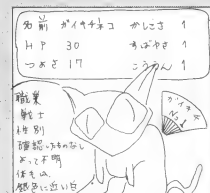 名前 ガイコチネコ かしこさ 1
HP 30 すばやさ 1
つよさ 17 こううん 1
職業
戦士
性別
確認したものなし
よって不明
体毛は、
銀色に近い白
ガイコチ
No.1